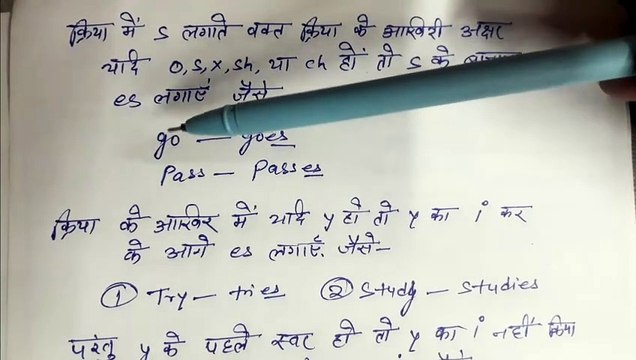 क्रिया में s लगाते वक्त क्रिया के आखिरी अक्षर
यदि o, s, x, sh, या ch हों तो s के
es लगाएँ जैसे
go — goes
Pass — Passes
क्रिया के आखिर में यदि y हो तो y का i कर
के आगे es लगाएँ. जैसे—
① Try — tries ② Study — Studies
परंतु y के पहले स्वर हो तो y का i नहीं किया